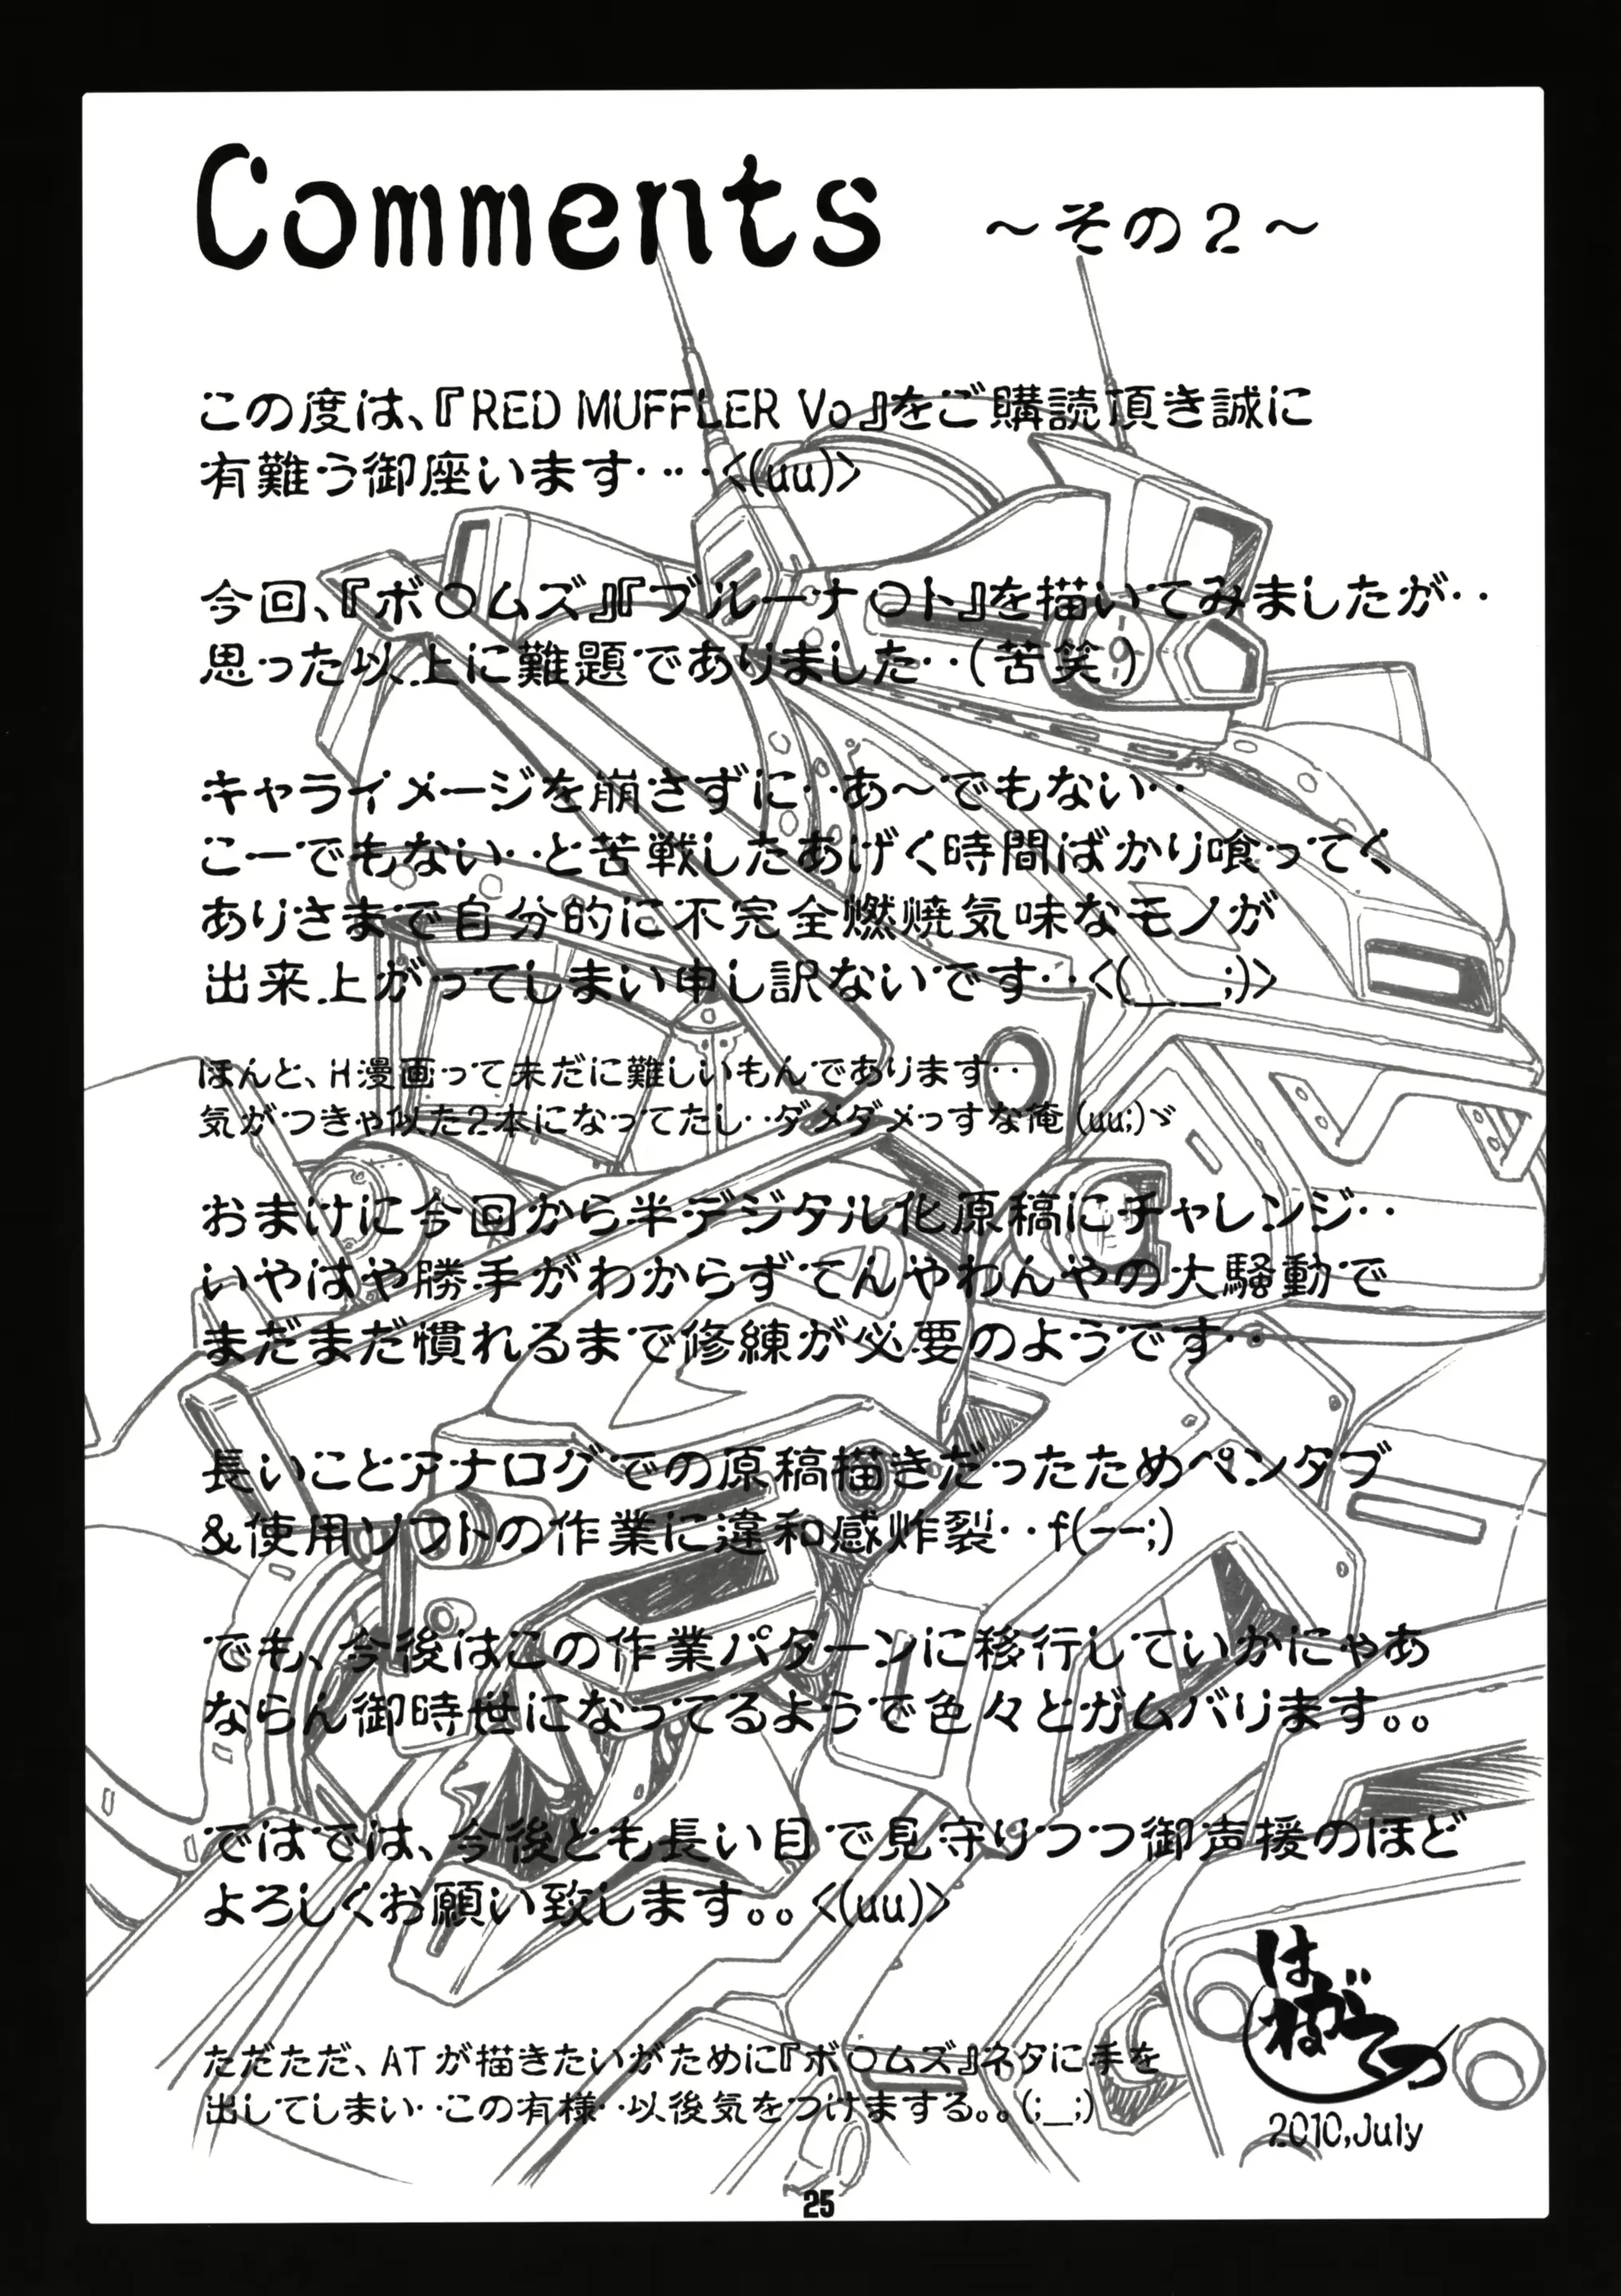 Comments ～その2～
この度は、『RED MUFFLER Vo』をご購読頂き誠に
有難う御座います‥‥<(uu)>
今回、『ボ○ムズ』『ブルーナ○ト』を描いてみましたが‥
思った以上に難題でありました‥(苦笑)
キャライメージを崩さずに‥あ～でもない‥
こーでもない‥と苦戦したあげく時間ばかり喰ってく
ありさまで自分的に不完全燃焼気味なモノが
出来上がってしまい申し訳ないです‥<(__;)>
ほんと、H漫画って未だに難しいもんであります‥
気がつきゃ似た2本になってたし‥ダメダメっすな俺(uu;)ゞ
おまけに今回から半デジタル化原稿にチャレンジ‥
いやはや勝手がわからずてんやわんやの大騒動で
まだまだ慣れるまで修練が必要のようです‥
長いことアナログでの原稿描きだったためペンタブ
&使用ソフトの作業に違和感炸裂‥f(ーー;)
でも、今後はこの作業パターンに移行していかにゃあ
ならん御時世になってるようで色々とガムバります。。
ではでは、今後とも長い目で見守りつつ御声援のほど
よろしくお願い致します。。<(uu)>
はねがてつ
2010,July
ただただ、ATが描きたいがために『ボ○ムズ』ネタに手を
出してしまい‥この有様‥以後気をつけまする。。(;_;)
25